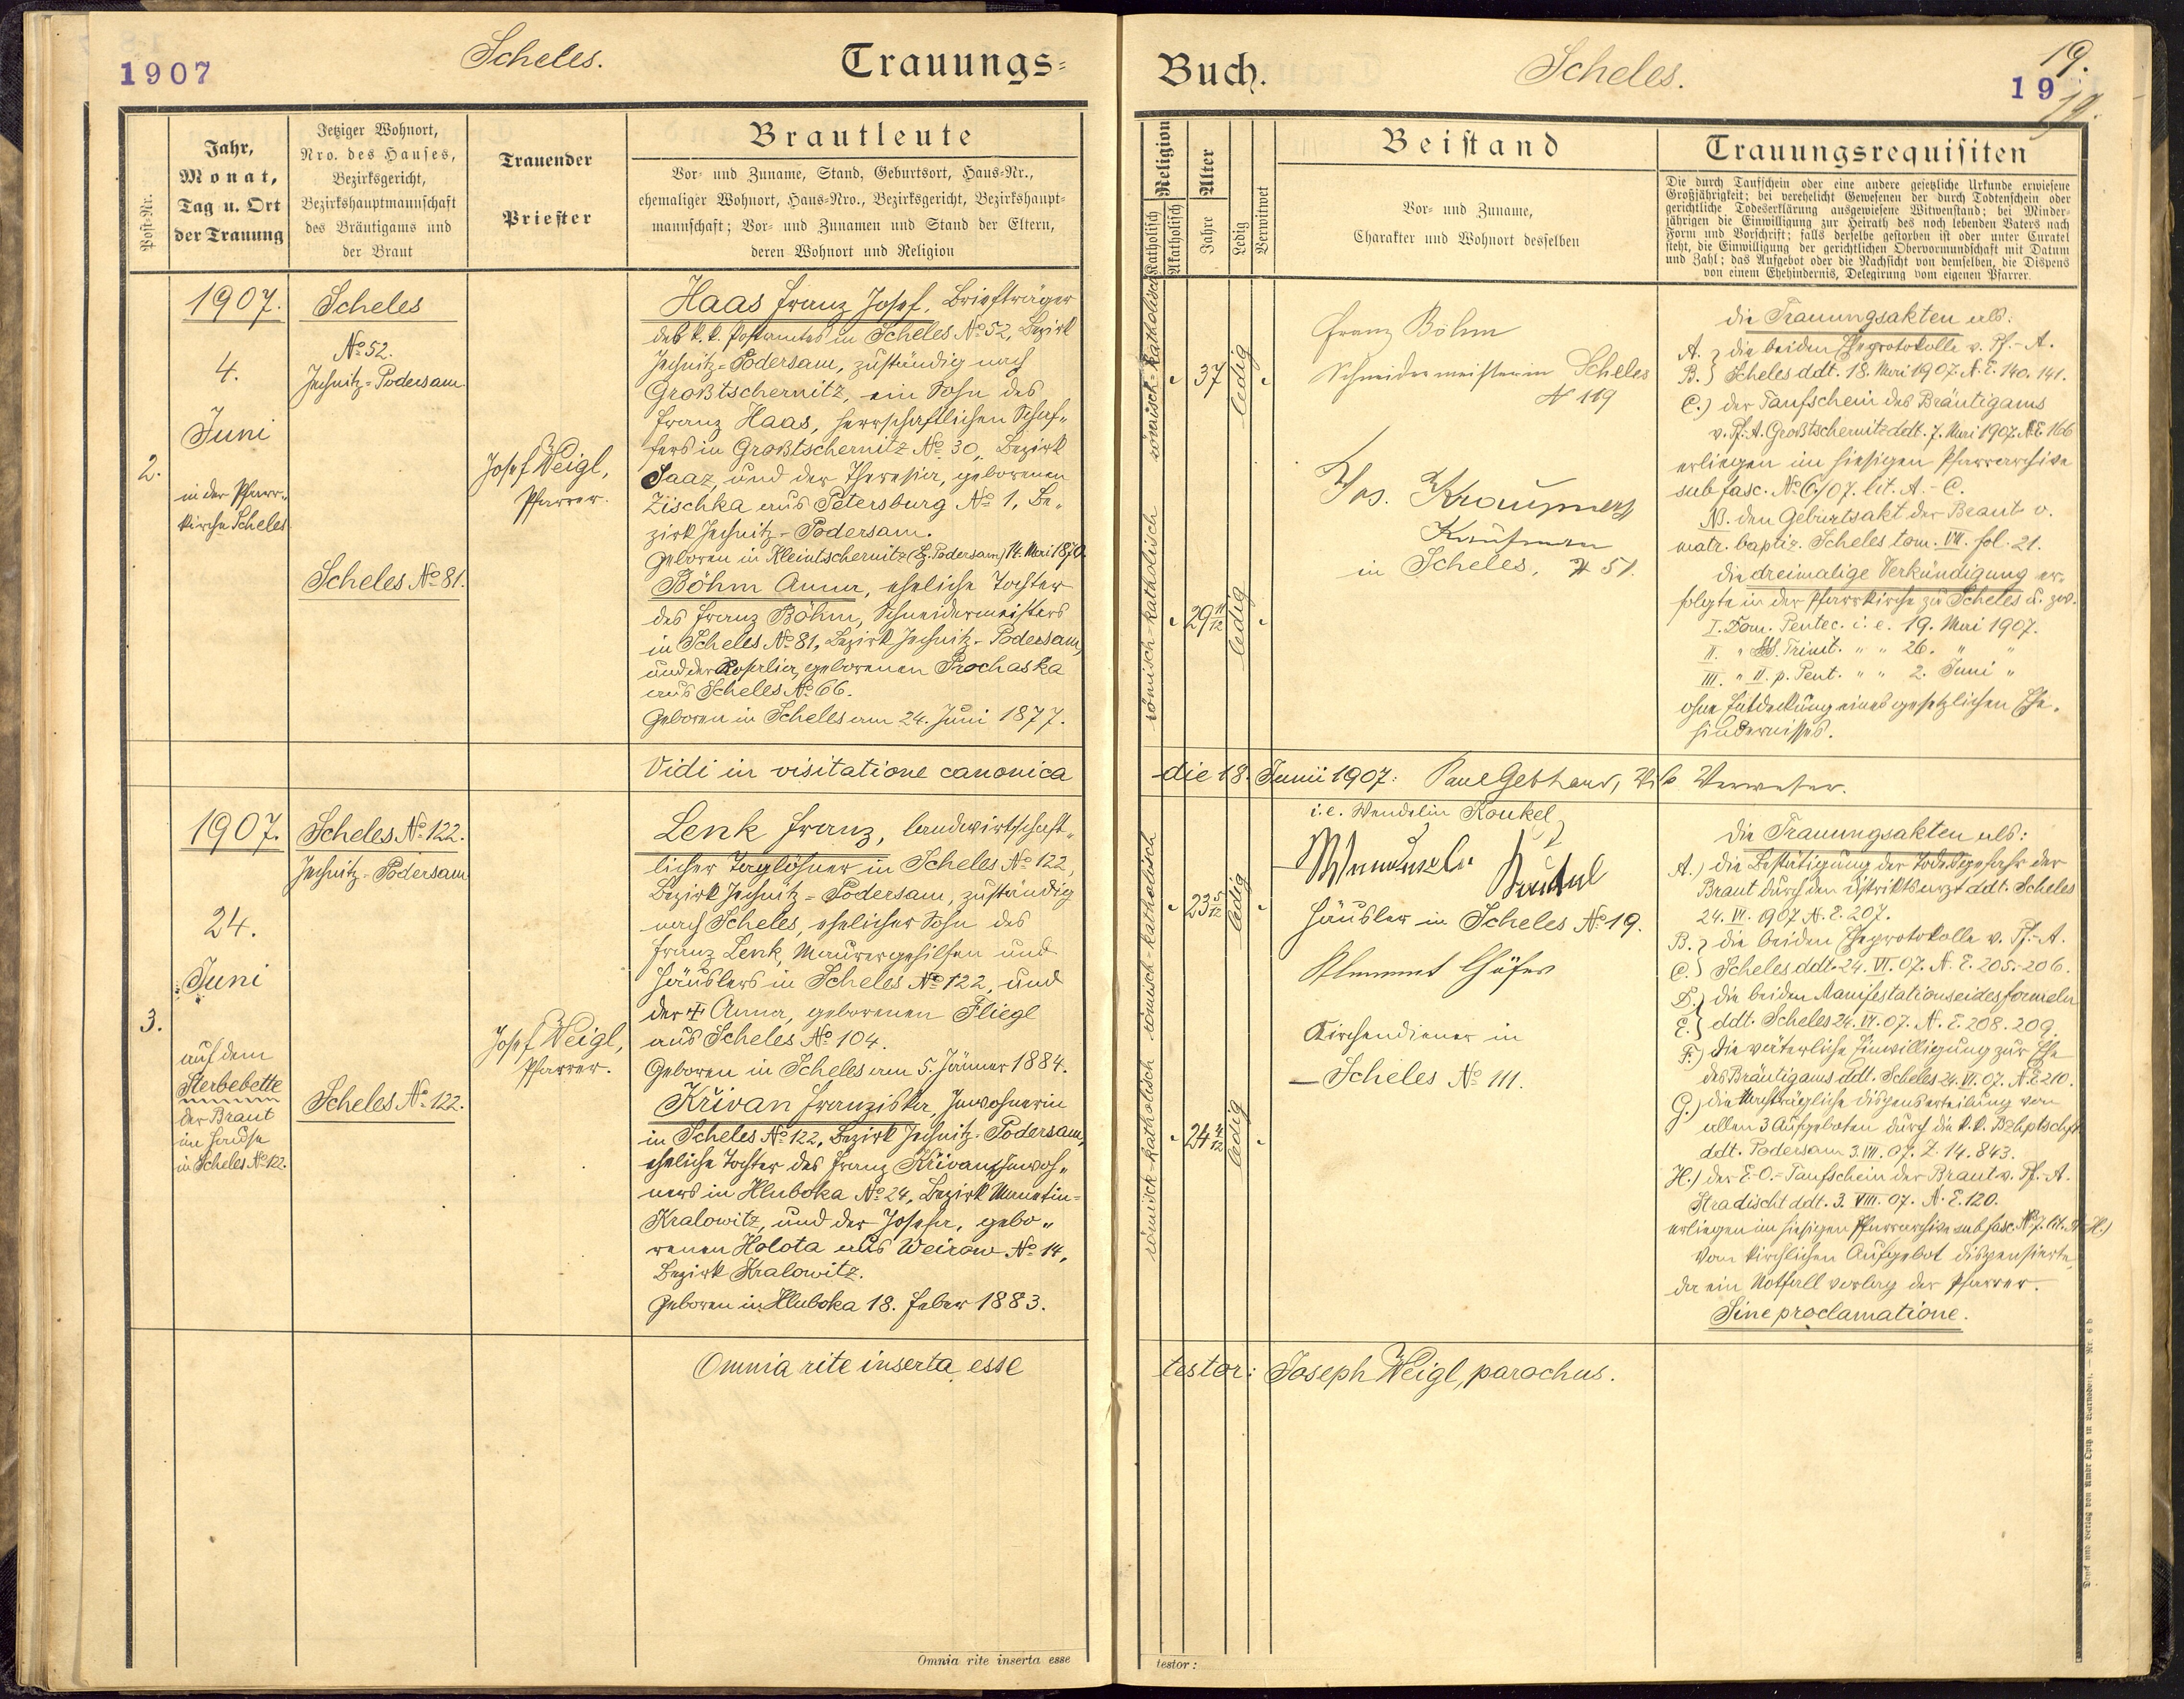 1907
Scheles.
Trauungs=
Post-Nr.
Jahr,
Monat,
Tag u. Ort
der Trauung
Jetziger Wohnort,
Nro. des Hauses,
Bezirksgericht,
Bezirkshauptmannschaft
des Bräutigams und
der Braut
Trauender
Priester
Brautleute
Vor- und Zuname, Stand, Geburtsort, Haus-Nr.,
ehemaliger Wohnort, Haus-Nro., Bezirksgericht, Bezirkshaupt-
mannschaft; Vor- und Zunamen und Stand der Eltern,
deren Wohnort und Religion
2.
1907.
4.
Juni
in der Pfarr-
kirche Scheles.
Scheles
No 52.
Jechnitz=Podersam
Scheles No 81.
Josef Weigl,
Pfarrer.
Haas Franz Josef, Briefträger
des k. k. Postamtes in Scheles No 52, Bezirk
Jechnitz=Podersam, zuständig nach
Großtschernitz, ein Sohn des
Franz Haas, herrschaftlichen Schaf-
fers in Großtschernitz No 30, Bezirk
Saaz, und der Theresia, geborenen
Zischka aus Petersburg No 1, Be-
zirk Jechnitz-Podersam.
Geboren in Kleintschernitz (Bz. Podersam) 14. Mai 1870.
Böhm Anna, eheliche Tochter
des Franz Böhm, Schneidermeisters
in Scheles No 81, Bezirk Jechnitz-Podersam,
und der Rosalia, geborenen Prochaska
aus Scheles No 66.
Geboren in Scheles am 24. Juni 1877.
Vidi in visitatione canonica
3.
1907.
24.
Juni
auf dem
Sterbebette
der Braut
im Hause
in Scheles No 122.
Scheles No 122.
Jechnitz-Podersam
Scheles No 122.
Josef Weigl,
Pfarrer.
Lenk Franz, landwirtschaft-
licher Taglöhner in Scheles No 122,
Bezirk Jechnitz=Podersam, zuständig
nach Scheles, ehelicher Sohn des
Franz Lenk, Maurergehilfen und
Häuslers in Scheles No 122, und
der † Anna, geborenen Fliegl
aus Scheles No 104.
Geboren in Scheles am 5. Jänner 1884.
Křivan Franziska, Inwohnerin
in Scheles No 122, Bezirk Jechnitz-Podersam,
eheliche Tochter des Franz Křivan, Inwoh-
ners in Hluboka No 24, Bezirk Manetin=
Kralowitz, und der Josefa, gebo-
renen Holota aus Weirow No 14,
Bezirk Kralowitz.
Geboren in Hluboka 18. Feber 1883.
Omnia rite inserta esse
Omnia rite inserta esse
Buch.
Scheles.
19.
19
19.
Religion
Katholisch
Akatholisch
Alter
Jahre
Ledig
Verwitwet
Beistand
Vor- und Zuname,
Charakter und Wohnort desselben
Trauungsrequisiten
Die durch Taufschein oder eine andere gesetzliche Urkunde erwiesene
Großjährigkeit; bei verehelicht Gewesenen der durch Todtenschein oder
gerichtliche Todeserklärung ausgewiesene Witwenstand; bei Minder-
jährigen die Einwilligung zur Heirath des noch lebenden Vaters nach
Form und Vorschrift; falls derselbe gestorben ist oder unter Curatel
steht, die Einwilligung der gerichtlichen Obervormundschaft mit Datum
und Zahl; das Aufgebot oder die Nachsicht von demselben, die Dispens
von einem Ehehindernis, Delegirung vom eigenen Pfarrer.
römisch-katholisch
37
ledig
römisch-katholisch
29 11/12
ledig
Franz Böhm
Schneidermeister in Scheles
N 119
Jos. Kraupner
Kaufmann
in Scheles, # 51.
die Trauungsakten als:
A. } die beiden Eheprotokolle v. Pf.-A.
B. } Scheles ddt. 18. Mai 1907. N. E. 140. 141.
C.) der Taufschein des Bräutigams
v. Pf.-A. Großtschernitz ddt. 7. Mai 1907. N. E. 166
erliegen im hiesigen Pfarrarchive
sub fasc. No 6./07. lit. A.-C.
NB. den Geburtsakt der Braut v.
matr. baptiz. Scheles tom. VII. fol. 21.
die dreimalige Verkündigung er-
folgte in der Pfarrkirche zu Scheles u. zw.
I. Dom. Pentec. i. e. 19. Mai 1907.
II. " SS. Trinit. " " 26. " "
III. " II. p. Pent. " " 2. Juni "
ohne Entdeckung eines gesetzlichen Ehe-
hindernisses.
die 18. Junii 1907: Paul Gebhard, Vik. Verweser.
römisch-katholisch
23 5/12
ledig
römisch-katholisch
24 4/12
ledig
i. e. Wendelin Konkel
Häusler in Scheles No 19.
Klement Höfer
Kirchendiener in
Scheles No 111.
die Trauungsakten als:
A.) die Bestätigung der Todesgefahr der
Braut durch den Distriktsarzt ddt. Scheles
24. VI. 1907. N. E. 207.
B. } die beiden Eheprotokolle v. Pf.-A.
C. } Scheles ddt. 24. VI. 07. N. E. 205.-206.
D. } die beiden Manifestationseidesformeln
E. } ddt. Scheles 24. VI. 07. N. E. 208. 209.
F.) die väterliche Einwilligung zur Ehe
des Bräutigams ddt. Scheles 24. VI. 07. N. E. 210.
G.) die nachträgliche Dispenserteilung von
allen 3 Aufgeboten durch die k. k. Bzhptschft
ddt. Podersam 3. VII. 07. Z. 14.843.
H.) der E.O.-Taufschein der Braut v. Pf.-A.
Hradischt ddt. 3. VIII. 07. N. E. 120.
erliegen im hiesigen Pfarrarchive sub fasc. No 7. lit. A-H.)
Vom kirchlichen Aufgebot dispensierte,
da ein Notfall vorlag der Pfarrer.
Sine proclamatione.
testor: Joseph Weigl, parochus.
testor: